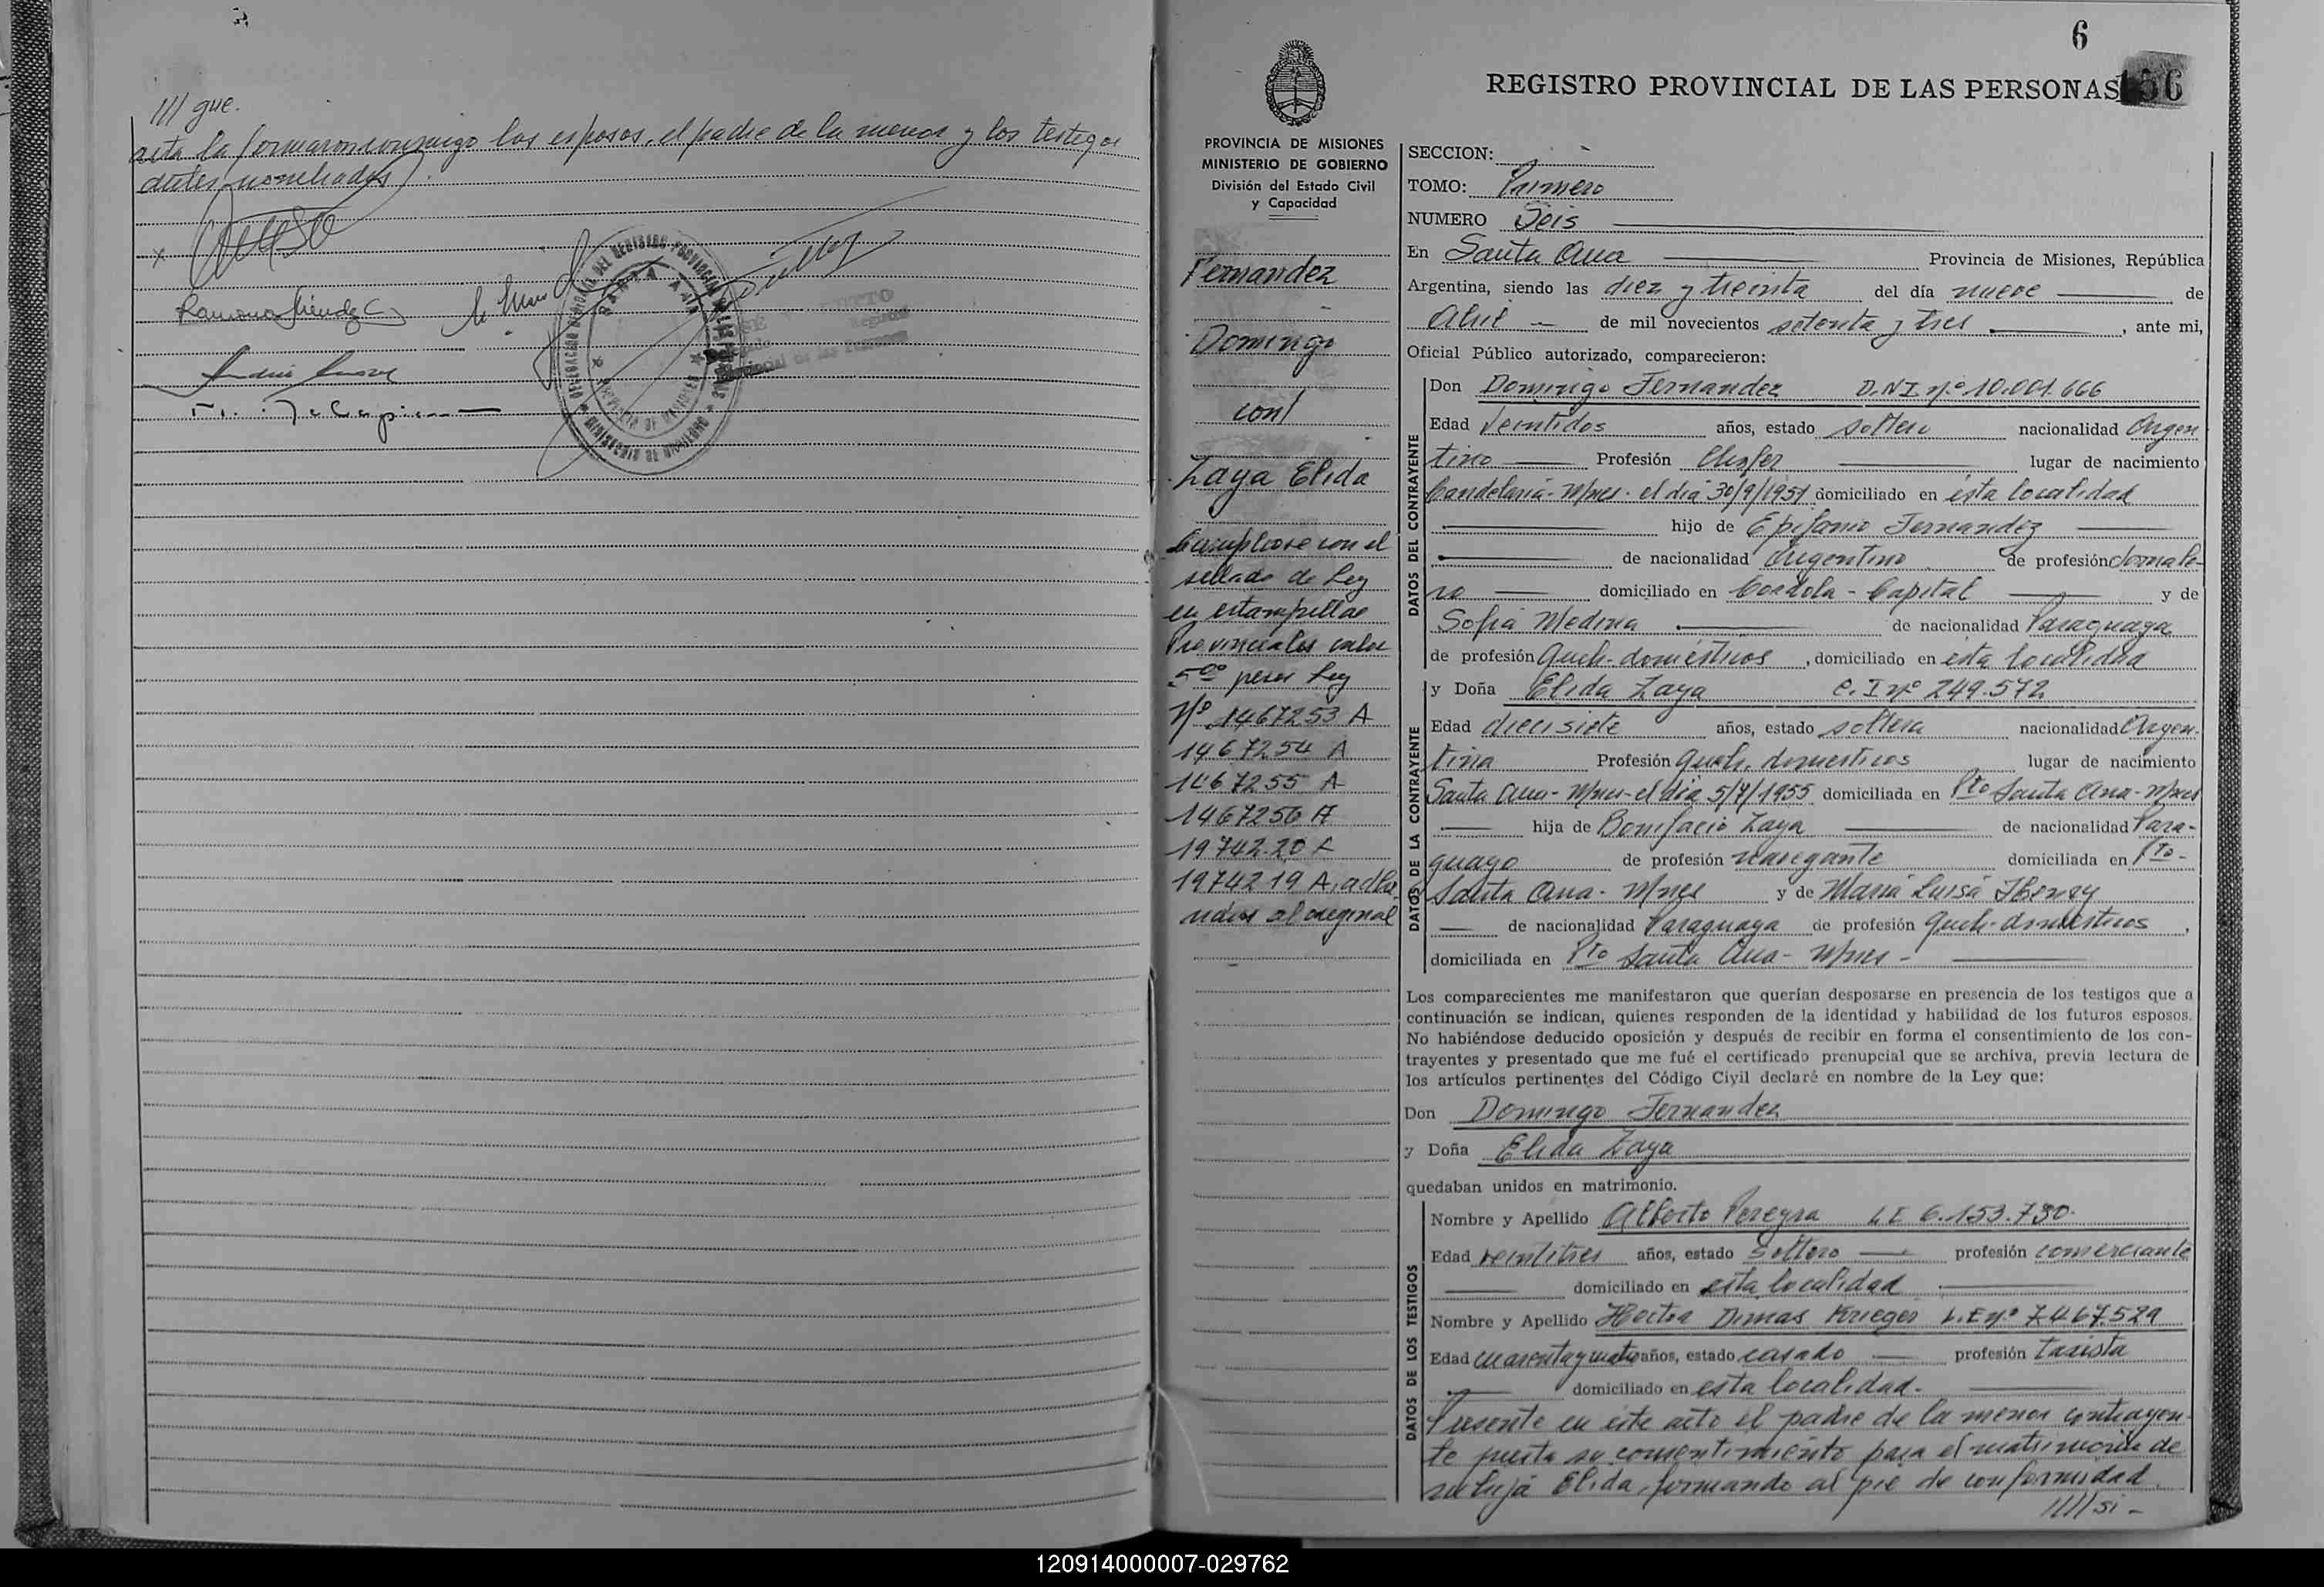 /// gue.
acta la firmaron conmigo los esposos, el padre de la menor y los testigos
antes nombrados.
Ramona Méndez
6
156
REGISTRO PROVINCIAL DE LAS PERSONAS
PROVINCIA DE MISIONES
MINISTERIO DE GOBIERNO
División del Estado Civil
y Capacidad
Fernandez
Domingo
con/
Zaya Elida
Cumplose con el
sellado de Ley
en estampillas
Provinciales valor
5oo pesos Ley
Nº 1467253 A
1467254 A
1467255 A
1467256 A
19742.20 A
1974219 A, adhe
ridas al original
SECCION:
TOMO: Primero
NUMERO Seis
En Santa Ana Provincia de Misiones, República
Argentina, siendo las diez y treinta del día nueve de
Abril de mil novecientos setenta y tres, ante mi,
Oficial Público autorizado, comparecieron:
DATOS DEL CONTRAYENTE
Don Domingo Fernandez D.N.I. nº 10.001.666
Edad Veintidos años, estado soltero nacionalidad Argen
tino Profesión Chofer lugar de nacimiento
Candelaria - Mnes. el dia 30/9/1951 domiciliado en esta localidad
hijo de Epifanio Fernandez
de nacionalidad Argentino de profesión Jornale-
ro domiciliado en Cordoba - Capital y de
Sofia Medina de nacionalidad Paraguaya
de profesión Queh. domésticos, domiciliado en esta localidad
DATOS DE LA CONTRAYENTE
y Doña Elida Zaya C.I nº 249.572
Edad diecisiete años, estado soltera nacionalidad Argen-
tina Profesión Queh. domesticos lugar de nacimiento
Santa Ana - Mnes - el dia 5/7/1955 domiciliada en Pto Santa Ana - Mnes
hija de Bonifacio Zaya de nacionalidad Para-
guayo de profesión navegante domiciliada en Pto -
Santa Ana - Mnes y de Maria Luisa
de nacionalidad Paraguaya de profesión Queh - domésticos,
domiciliada en Pto Santa Ana - Mnes -
Los comparecientes me manifestaron que querían desposarse en presencia de los testigos que a
continuación se indican, quienes responden de la identidad y habilidad de los futuros esposos.
No habiéndose deducido oposición y después de recibir en forma el consentimiento de los con-
trayentes y presentado que me fué el certificado prenupcial que se archiva, previa lectura de
los artículos pertinentes del Código Civil declaré en nombre de la Ley que:
Don Domingo Fernandez
y Doña Elida Zaya
quedaban unidos en matrimonio.
DATOS DE LOS TESTIGOS
Nombre y Apellido Alberto Pereyra L E 6.153.730.
Edad veintitres años, estado Soltero profesión comerciante
domiciliado en esta localidad
Nombre y Apellido Hector Dimas Krieger L.E nº 7.467.529
Edad cuarenta y cuatro años, estado casado profesión taxista
domiciliado en esta localidad.
Presente en este acto el padre de la menor contrayen-
te presta su consentimiento para el matrimonio de
su hija Elida, firmando al pie de conformidad
////si -
120914000007-029762